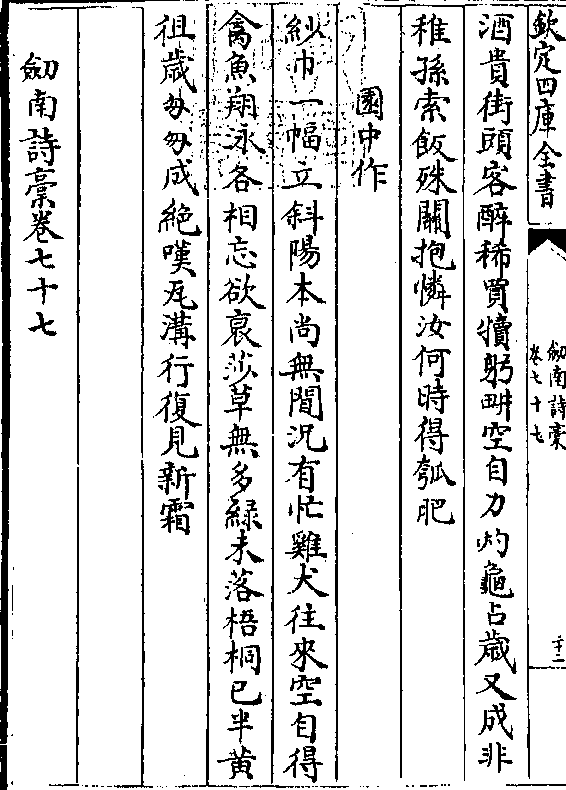 欽定四庫全書
劒南詩稾
卷七十七
二十二
酒貴街頭客醉稀買犢躬畊空自力灼龜占歲又成非
稚孫索飯殊關抱憐汝何時得瓠肥
園中作
紗巾一幅立斜陽本尚無閒況有忙雞犬往來空自得
禽魚翔泳各相忘欲衰莎草無多緑未落梧桐已半黄
徂歲匆匆成絶嘆瓦溝行復見新霜
劒南詩稾卷七十七